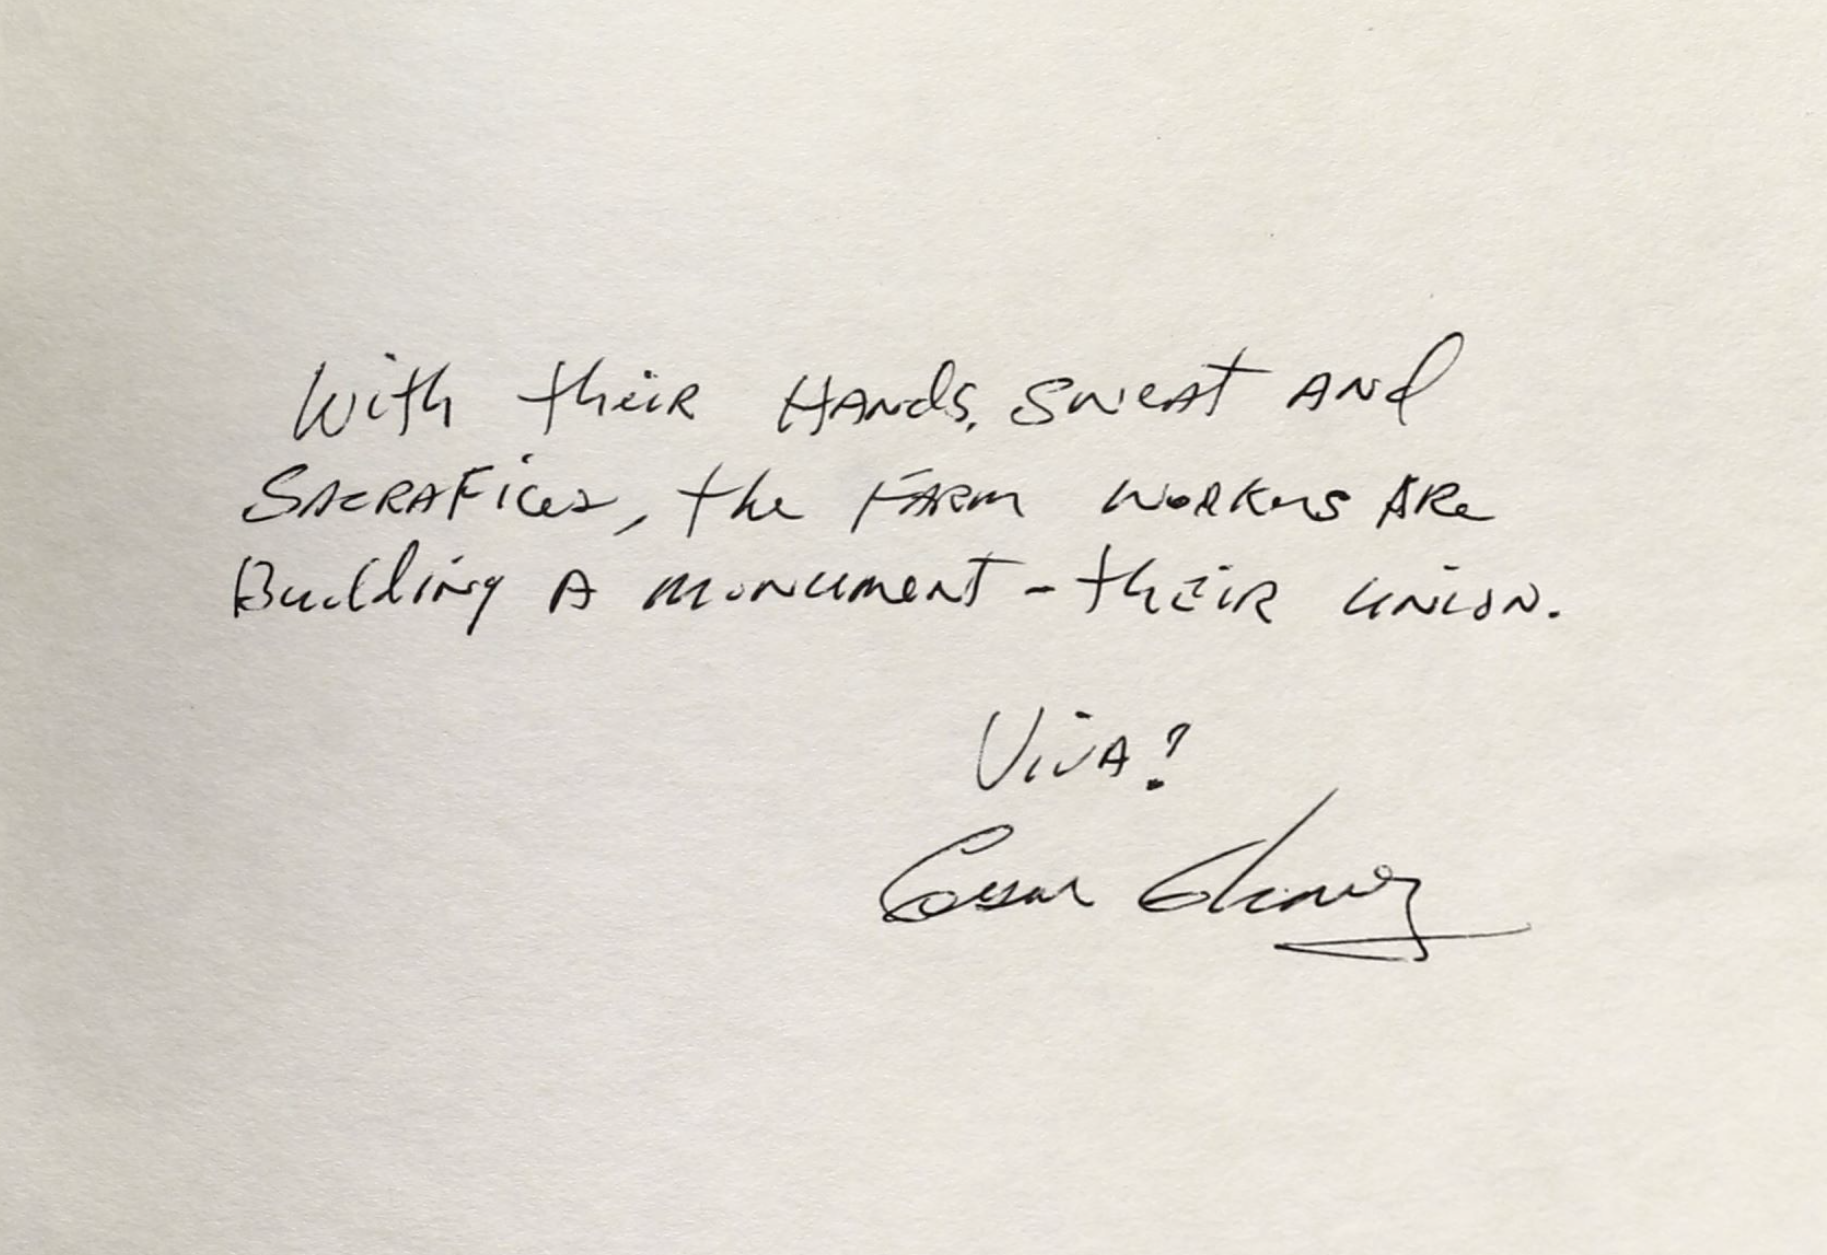 With their Hands, Sweat and
Sacrafices, the Farm workers are
Building a monument - their union.
Viva!
Cesar Chavez